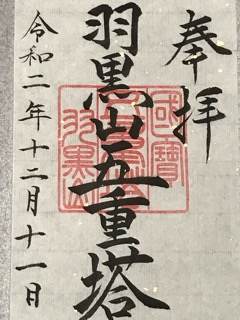 奉拝
羽黒山五重塔
令和二年十二月十一日
國寶
羽黒山